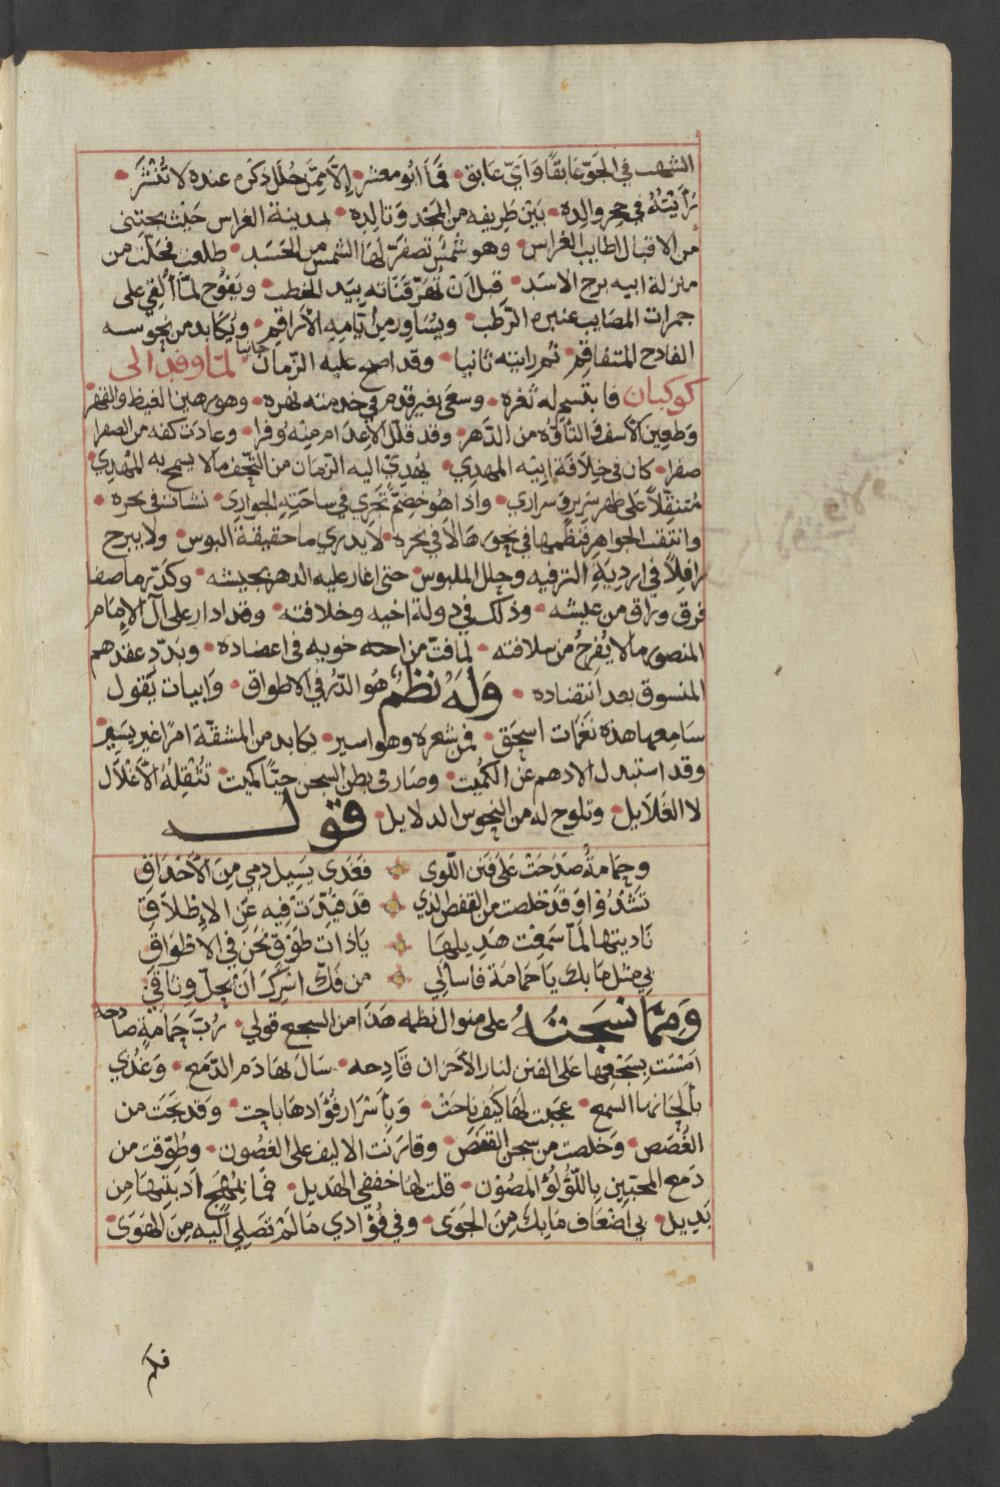 الشهب في الجوّ عابقًا وَايّ عَابق • فما ابو معشر • إلّا ممّن حُلل ذكره عنده لا تُنْشَرَ •
رَأيتهُ في حِجر والِده • بَيْن طَريفه من المجد وَتالِده • بمدينة الغراس حَيْث يجتنى
من الاقبال اطايب الغراس • وهو شمسٌ تصفرّ لها الشمس من الحَسَد • طلعت فحلّت من
منزلة ابيه برج الاسَد • قبل انْ تُهَزّ قنَاته بِيَد الخطب • ويَفُوح لمّا أُلقي على
جمرات المصايب عنبره الرّطب • ويُسَاور من ايّامِهِ الأَراقم • ويُكَابد من نحوسه
الفادح المتفاقم • ثم رايته ثانيا • وقد اصبح عليه الزمان جانيا لمّا وفد الى
كوكبان فابتسم له ثغره • وسعَى بغير قدم في خدمته نهره • وهو رهين الغيظ والقهر
وَطعين الأسف والتاَوُّه من الدّهر • وقد قلّل الأعدَام مِنْه وُفرا • وعادت كفه من الصفرا
صفرا • كان في خِلَافَة ابيْه المهدي • يُهْدِيْ اليه الزمان من التّحف مالا يسمح به المُهْدِي
مُتنقِلاً على ظهر سرير وسَرارَي • واذا هو خِضَمٌّ تجَري في ساحَتِهِ الجوارى • نشات في بحره •
وانتقت الجواهر فنظمها في نحور هَالَا في نحره • لا يدري ما حقيقة البوس • ولا يبرح
رافلاً في ارديةِ الترفيه وحلل الملبوس • حتى اغار عليه الدهر بجيشه • وكدّر ما صفا
فرق وراق من عيشه • وذلك في دولة اخيه وخلافته • وقد ادار على آل الإمَام
المنصور مالا يُفرحُ من سلافته • لما فتّ من احد خويه في اعضاده • وبَدّد عقدهم
المنسوق بعد انتضاده • وَلَهُ نظمٌ هُو الدُّر في الاطواق • وَابيات يَقول
سَامعها هذه نغَمات اسحَق • فمن شعره وهو اسير • يكابد من المشقّة امرًا غير يسَيْر
وقد استبدل الادهم عن الكُميت • وصَار في بطن السجن حيًّا كميت • تُثْقِلهُ الأغلَال
لا الغَلَايل • وتلوح له من النحوس الدلايل • قوله
وحمَامةٌ صَدَحَتْ عَلى فَنن اللّوى • فغَدَى يَسِيل دمي مِنَ الأَحْدَاقِ
تَشْدُوْ اوَقَدْ خلصت من القفص الذي • قدَ قيّدت فيه عَنِ الإِطْلَاقِ
نَاديتها لمّا سَمِعْت هَدِيلهَا • يَا ذات طَوْقٍ نحَن في الاطْوَاقِ
بي مثل مَا بك يَا حمَامَة فاسألي • من فكّ اسْرَكَ انْ يَحُلّ وِثاقي
وَمِمّا نسَجتهُ على منوال نظمه هَذَا من السجع قولي • رُبّ حمَامةٍ صَادحه
امْسَت بسَجْعِها عَلى الفنن لنار الأحزان قَادِحه • سَالَ بهَا دَم الدّمع • وَغُذي
بأَلحانها السمع • عجَبت لهَا كيْفَ نَاحَتْ • وَبأسْرَار فُؤادهَا بَاحت • وقد نجَت من
الغُصَص • وَخلصت من سجن القفَص • وقارنَت الاليف على الغصُون • وطُوّقت من
دَمع المحبّين بِاللُّؤلُؤ المصُوْن • قلت لهَا خفضي الهَديل •
بَدِيل • بي اضْعَاف مَا بِك مِنَ الجَوَى • وفي فُؤادي مَا لَمْ تصَلي اليهِ مِنَ الهَوَى •